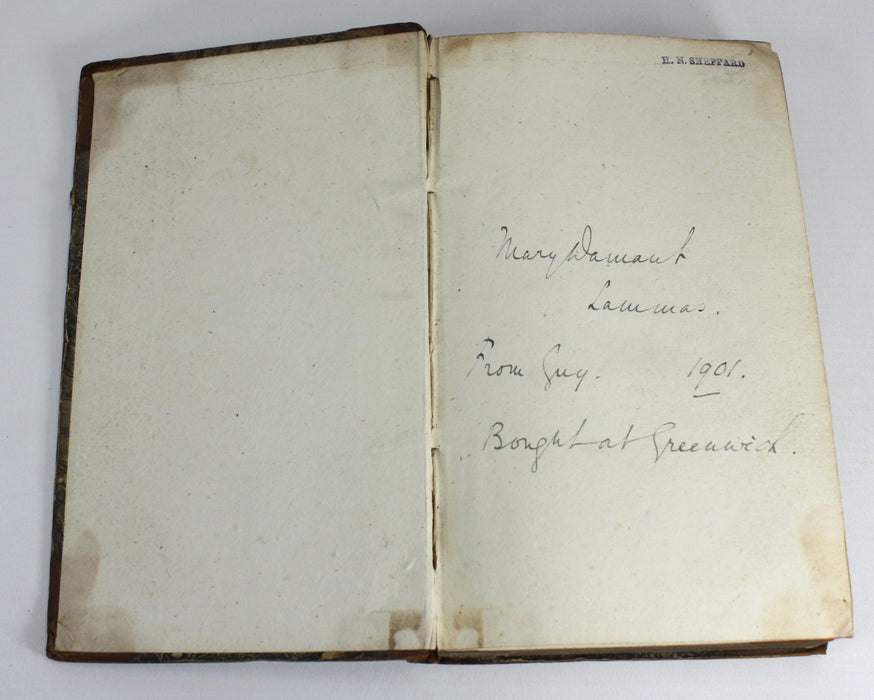 H. N. SHEPPARD
Mary Damant
Lammas.
From Guy. 1901.
Bought at Greenwich.